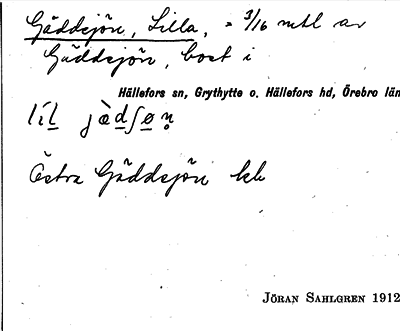 Gäddsjön, Lilla, = 3/16 mtl av
Gäddsjön, bost i
Hällefors sn, Grythytte o. Hällefors hd, Örebro län
líl jὰdʃøn̥
Östra Gäddsjön kk
JÖRAN SAHLGREN 1912